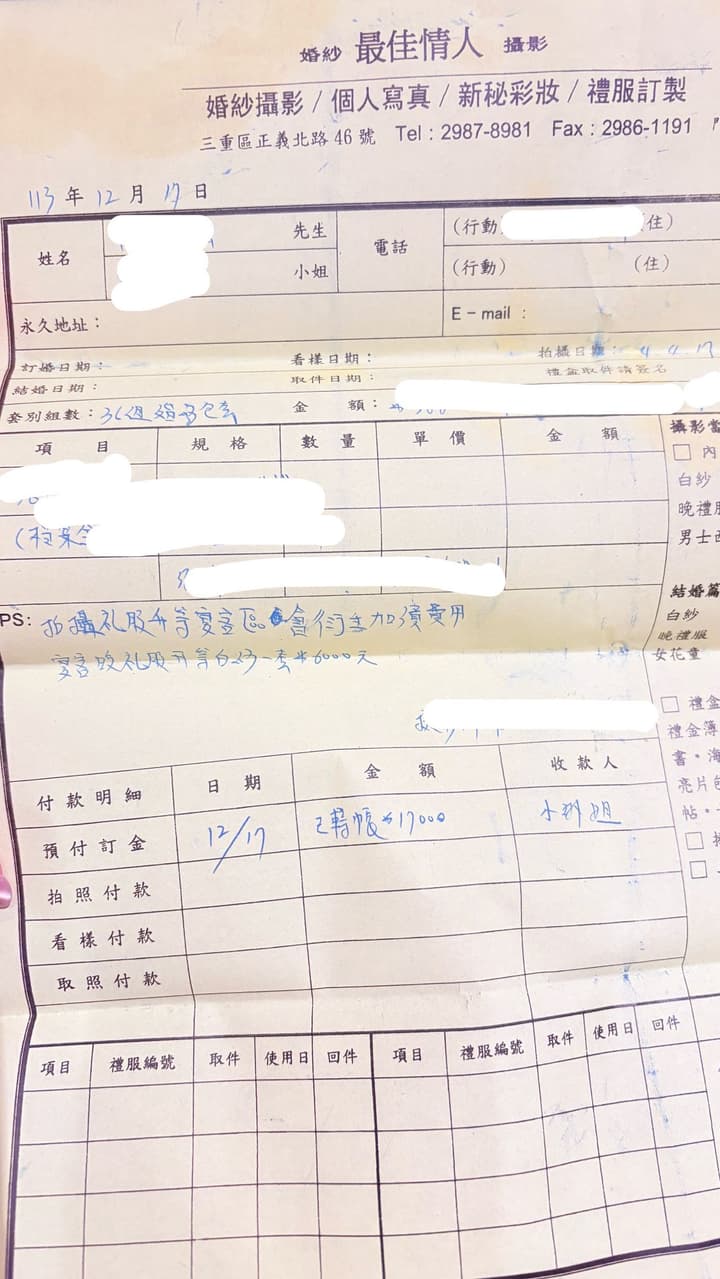 婚紗 最佳情人 攝影
婚紗攝影 / 個人寫真 / 新秘彩妝 / 禮服訂製
三重區正義北路46號 Tel : 2987-8981 Fax : 2986-1191
113年12月17日
姓名 先生 電話 (行動 (住)
小姐 (行動) (住)
永久地址： E-mail :
訂婚日期： 看樣日期： 拍攝日期：
結婚日期： 取件日期： 禮盒取件請簽名
套別組數： 金額：
項目 規格 數量 單價 金額
攝影當
內
白紗
晚禮服
男士西
結婚篇
白紗
晚禮服
女花童
PS: 拍攝礼服升等 區 會 加 費用
礼服升等 一套 $6000元
禮金
禮金簿
書・海
亮片
帖・
付款明細 日期 金額 收款人
預付訂金 12/17 已轉帳$17000 小 姐
拍照付款
看樣付款
取照付款
項目 禮服編號 取件 使用日 回件 項目 禮服編號 取件 使用日 回件